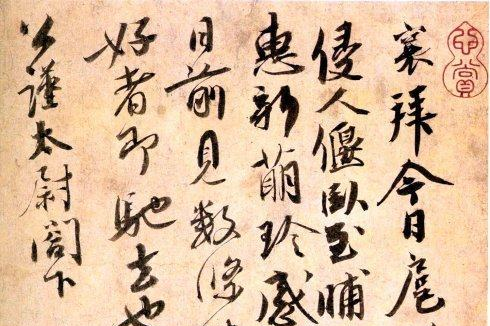 襄拜今日扈
侵人偃臥至晡
惠新萌珍感
日前見數條
好者即馳去也
公謹太尉閣下
心賞